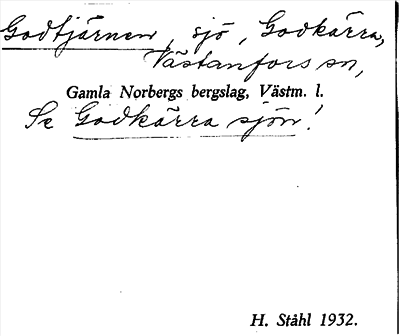 Godtjärnen, sjö, Godkärra,
Västanfors sn,
Gamla Norbergs bergslag, Västm. l.
Se Godkärra sjön!
H. Ståhl 1932.